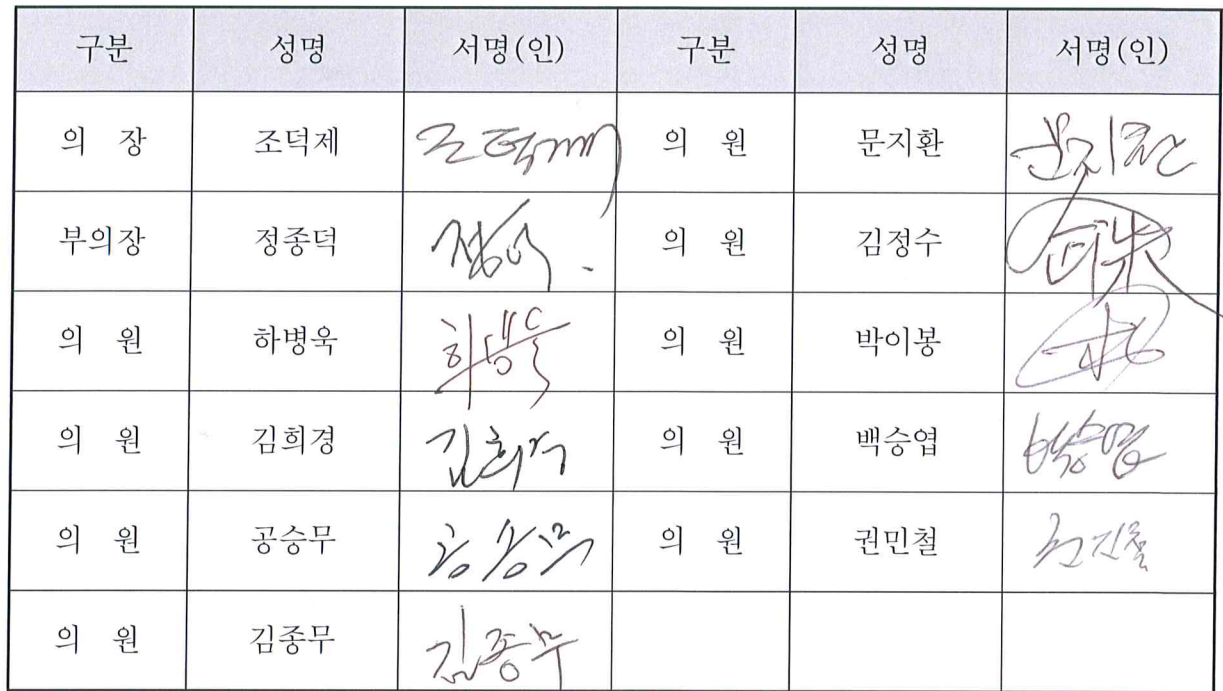 구분 성명 서명(인) 구분 성명 서명(인)
의 장 조덕제 조덕제 의 원 문지환 문지환
부의장 정종덕 의 원 김정수
의 원 하병욱 하병욱 의 원 박이봉
의 원 김희경 김희경 의 원 백승엽 백승엽
의 원 공승무 공승무 의 원 권민철
의 원 김종무 김종무